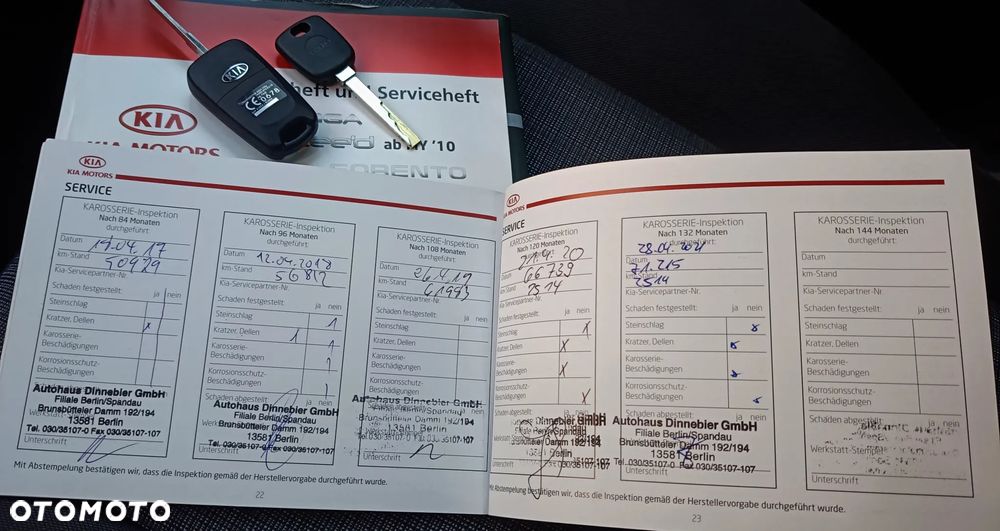 KIA
CE 0678
KIA
KIA MOTORS
heft und Serviceheft
ee'd ab MY '10
SORENTO
KIA
KIA MOTORS
SERVICE
KAROSSERIE-Inspektion
Nach 84 Monaten
durchgeführt:
Datum 19.04.17
km-Stand 50929
Kia-Servicepartner-Nr.
Schaden festgestellt: ja nein
Steinschlag
Kratzer, Dellen x
Karosserie-
Beschädigungen
Korrosionsschutz-
Beschädigungen
Autohaus Dinnebier GmbH
Filiale Berlin/Spandau
Brunsbütteler Damm 192/194
13581 Berlin
Tel. 030 35107-0 Fax 030/35107-107
Unterschrift
KAROSSERIE-Inspektion
Nach 96 Monaten
durchgeführt:
Datum 12.04.2018
km-Stand 56812
Kia-Servicepartner-Nr.
Schaden festgestellt: ja nein
Steinschlag
Kratzer, Dellen
Karosserie-
Beschädigungen
Korrosionsschutz-
Beschädigungen
Schäden abgestellt:
Autohaus Dinnebier GmbH
Filiale Berlin/Spandau
Brunsbütteler Damm 192/194
13581 Berlin
Tel. 030/35107-0 Fax 030/35107-107
Unterschrift
KAROSSERIE-Inspektion
Nach 108 Monaten
durchgeführt:
Datum 26.4.19
km-Stand 61993
Kia-Servicepartner-Nr.
Schaden festgestellt:
Steinschlag
Kratzer, Dellen
Karosserie-
Beschädigungen
Korrosionsschutz-
Beschädigungen
Autohaus Dinnebier GmbH
Filiale Berlin/Spandau
Brunsbütteler Damm 192/194
13581 Berlin
Unterschrift
Mit Abstempelung bestätigen wir, dass die Inspektion gemäß der Herstellervorgabe durchgeführt wurde.
22
KIA
KIA MOTORS
SERVICE
KAROSSERIE-Inspektion
Nach 120 Monaten
durchgeführt:
Datum 21.4.20
km-Stand 66739
2514
Kia-Servicepartner-Nr.
Schaden festgestellt:
ja nein
Steinschlag x
Kratzer, Dellen x
Karosserie-
Beschädigungen x
Korrosionsschutz-
Beschädigungen x
Schäden abgestellt:
Dinnebier GmbH
Berlin/Spandau
Damm 192/194
13581 Berlin
Unterschrift
KAROSSERIE-Inspektion
Nach 132 Monaten
durchgeführt:
Datum 28.04.2021
km-Stand 71.215
2514
Kia-Servicepartner-Nr.
Schaden festgestellt: ja nein
Steinschlag
Kratzer, Dellen
Karosserie-
Beschädigungen
Korrosionsschutz-
Beschädigungen
Schäden abgestellt:
Autohaus Dinnebier GmbH
Filiale Berlin/Spandau
Brunsbütteler Damm 192/194
13581 Berlin
Tel. 030/35107-0 Fax 030/35107-107
Unterschrift
KAROSSERIE-Inspektion
Nach 144 Monaten
durchgeführt:
Datum
km-Stand
Kia-Servicepartner-Nr.
Schaden festgestellt:
ja nein
Steinschlag
Kratzer, Dellen
Karosserie-
Beschädigungen
Korrosionsschutz-
Beschädigungen
Schäden abgestellt:
Werkstatt-Stempel
Unterschrift
Mit Abstempelung bestätigen wir, dass die Inspektion gemäß der Herstellervorgabe durchgeführt wurde.
23
OTOMOTO